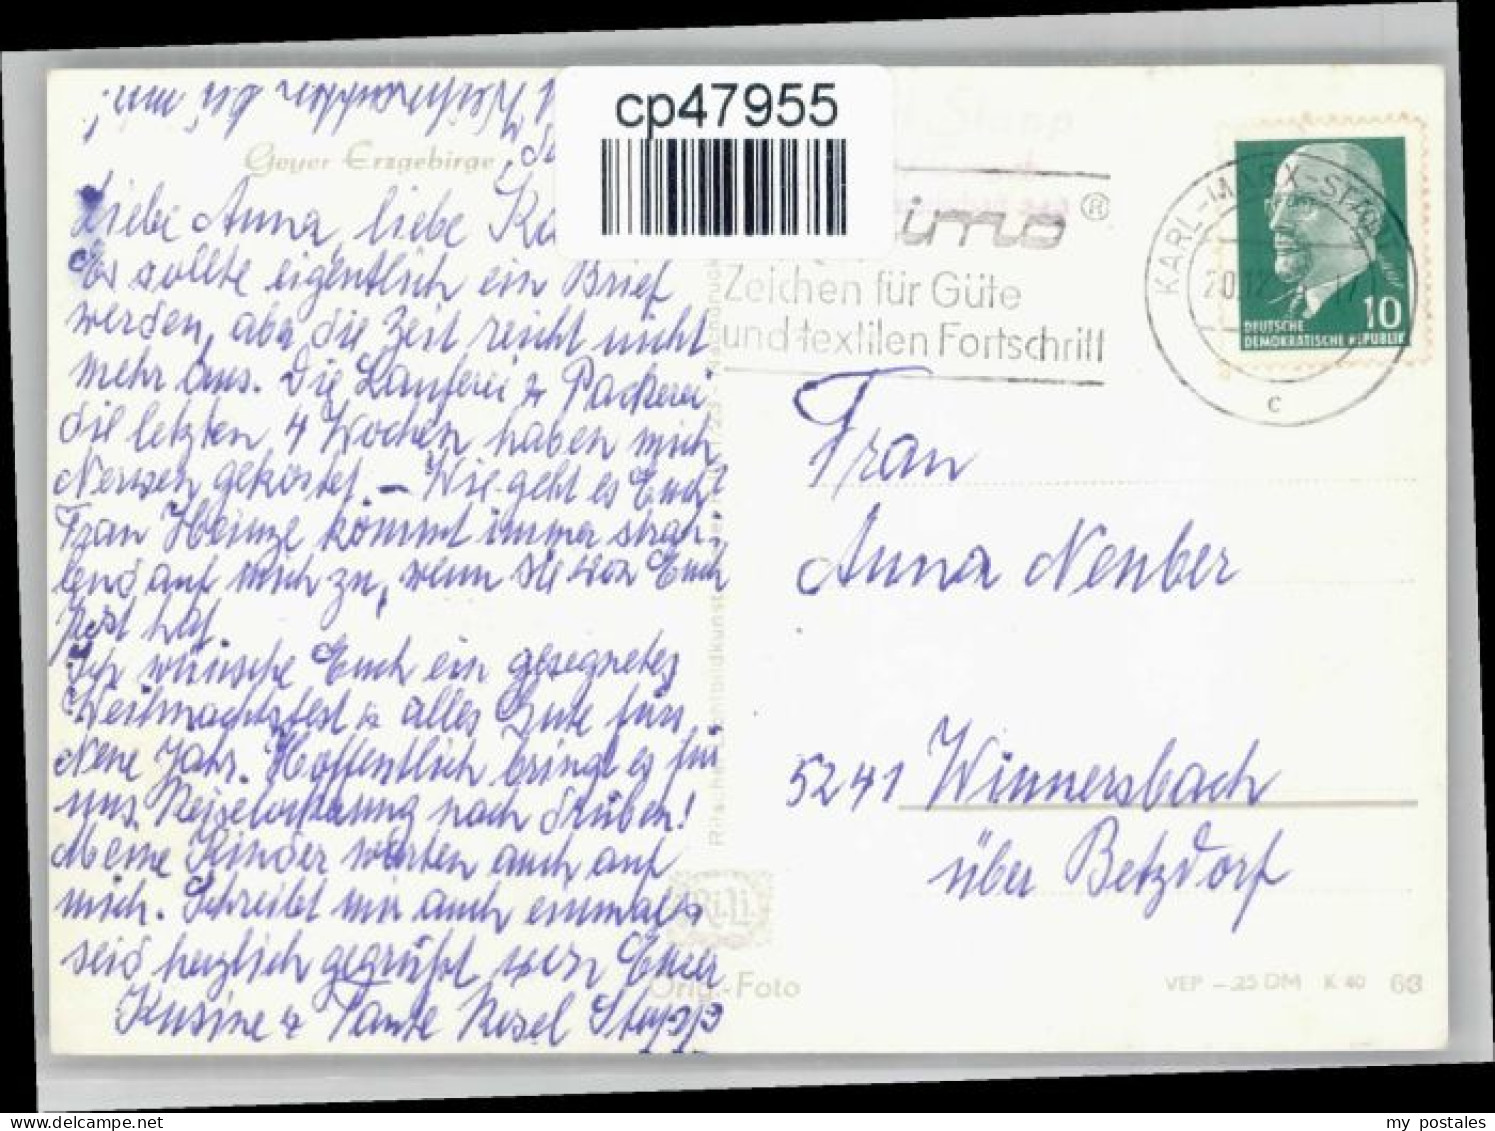 cp47955
Geyer Erzgebirge
Liebe Anna, liebe
Es sollte eigentlich ein Brief
werden, aber die Zeit reicht nicht
mehr aus. Die Lauferei & Packerei
die letzten 4 Wochen haben mich
Nerven gekostet. – Wie geht es Euch?
Frau Heinze kommt immer strah-
lend auf mich zu, wenn sie von Euch
Post hat.
Ich wünsche Euch ein gesegnetes
Weihnachtsfest & alles Gute fürs
Neue Jahr. Hoffentlich bringt es für
uns Reiselockerung nach drüben!
Meine Kinder warten auch auf
mich. Schreibt mir auch einmal &
seid herzlich gegrüßt von Eurer
Kusine & Tante Resel Stapp
®
Zeichen für Güte
und textilen Fortschritt
KARL-MARX-STADT
20.12.
c
10
DEUTSCHE
DEMOKRATISCHE REPUBLIK
Frau
Anna Neuber
5241 Winnersbach
über Betzdorf
RiLi
Orig.-Foto
VEP – .25 DM K 40 63
my postales